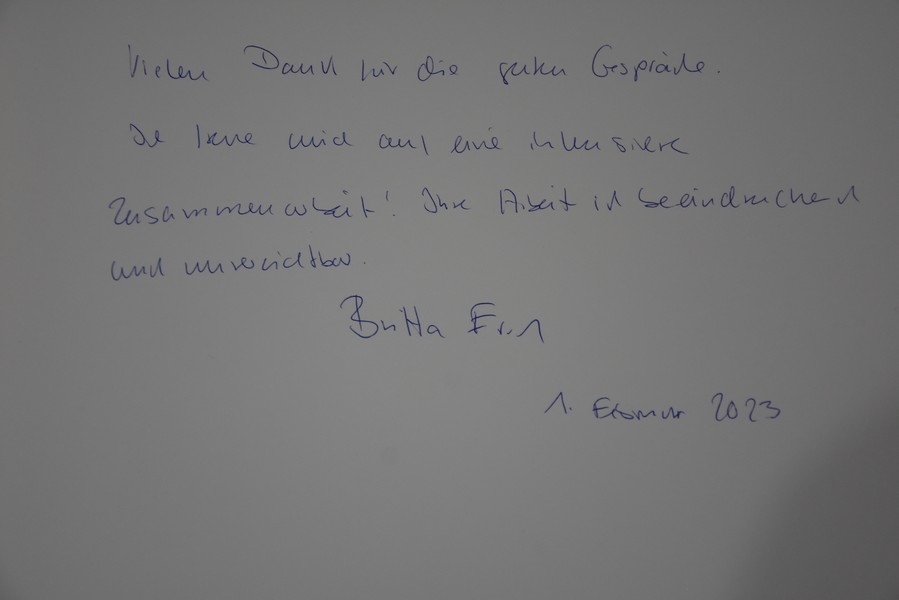 Vielen Dank für die guten Gespräche.
Ich freue mich auf eine intensivere
Zusammenarbeit! Ihre Arbeit ist beeindruckend
und unverzichtbar.
Britta
1. Februar 2023